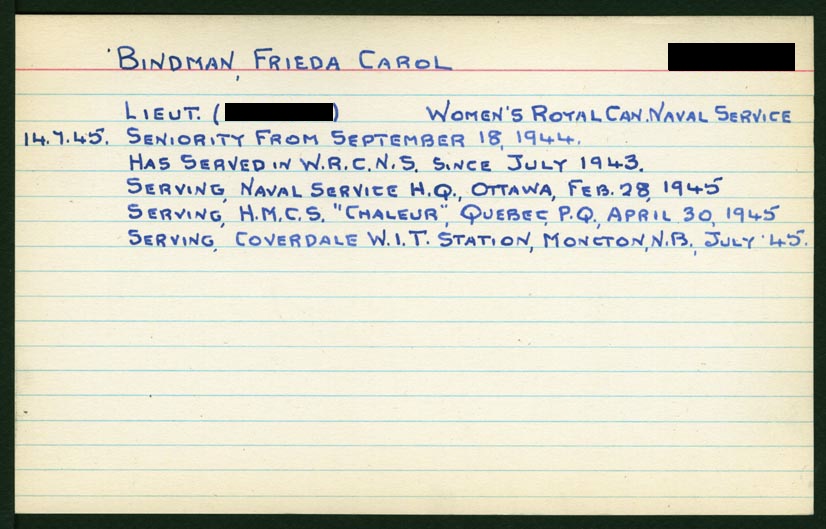 BINDMAN, FRIEDA CAROL
LIEUT. ( ) WOMEN'S ROYAL CAN. NAVAL SERVICE
14.7.45. SENIORITY FROM SEPTEMBER 18, 1944.
HAS SERVED IN W.R.C.N.S. SINCE JULY 1943.
SERVING, NAVAL SERVICE H.Q., OTTAWA, FEB. 28, 1945
SERVING, H.M.C.S. "CHALEUR", QUEBEC, P.Q., APRIL 30, 1945
SERVING, COVERDALE W.I.T. STATION, MONCTON, N.B., JULY '45.